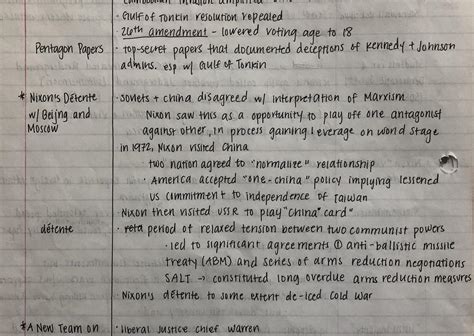 · Gulf of Tonkin resolution repealed
· 26th amendment - lowered voting age to 18
Pentagon Papers · top-secret papers that documented deceptions of kennedy + Johnson
admins. esp w/ Gulf of Tonkin
* Nixon's Détente · soviets + china disagreed w/ interpretation of Marxism
w/ Beijing and Nixon saw this as a opportunity to play off one antagonist
Moscow against other, in process gaining leverage on world stage
in 1972, Nixon visited china
two nation agreed to "normalize" relationship
· America accepted "one-china" policy implying lessened
US commitment to independence of Taiwan
· Nixon then visited USSR to play "china card"
détente · period of relaxed tension between two communist powers
· led to significant agreements ① anti-ballistic missile
treaty (ABM) and series of arms reduction negotiations
SALT → constituted long overdue arms reduction measures
· Nixon's détente to some extent de-iced cold war
* A New Team on · liberal Justice chief Warren